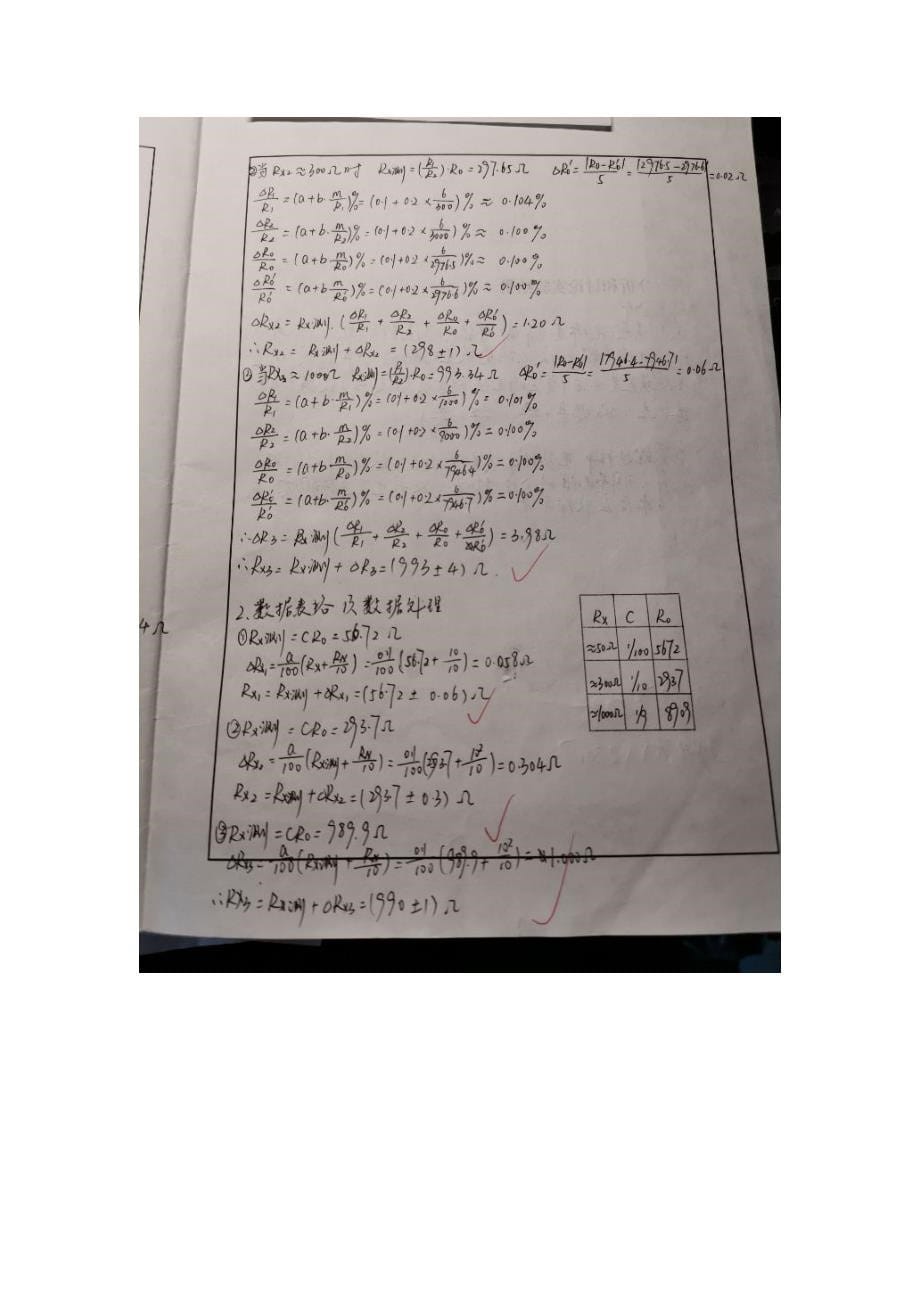 ②当Rx2≈300Ω时 Rx测=(R1/R2)·R0=297.65Ω ΔR0'=|R0-R0'|/5=|2976.5-2976.6|/5=0.02Ω
ΔR1/R1=(a+b·m/R1)%=(0.1+0.2×6/300)%≈0.104%
ΔR2/R2=(a+b·m/R2)%=(0.1+0.2×6/3000)%≈0.100%
ΔR0/R0=(a+b·m/R0)%=(0.1+0.2×6/2976.5)%≈0.100%
ΔR0'/R0'=(a+b·m/R0')%=(0.1+0.2×6/2976.6)%≈0.100%
ΔRx2=Rx测·(ΔR1/R1+ΔR2/R2+ΔR0/R0+ΔR0'/R0')=1.20Ω
∴Rx2=Rx测+ΔRx2=(298±1)Ω
当Rx3≈1000Ω Rx测=(R1/R2)·R0=993.34Ω ΔR0'=|R0-R0'|/5=|7946.4-7946.7|/5=0.06Ω
ΔR1/R1=(a+b·m/R1)%=(0.1+0.2×6/1000)%=0.101%
ΔR2/R2=(a+b·m/R2)%=(0.1+0.2×6/8000)%=0.100%
ΔR0/R0=(a+b·m/R0)%=(0.1+0.2×6/7946.4)%=0.100%
ΔR0'/R0'=(a+b·m/R0')%=(0.1+0.2×6/7946.7)%=0.100%
∴ΔR3=Rx测(ΔR1/R1+ΔR2/R2+ΔR0/R0+ΔR0'/R0')=3.98Ω
∴Rx3=Rx测+ΔR3=(993±4)Ω.
2.数据表格及数据处理
①Rx测=CR0=56.72Ω
ΔRx1=a/100(Rx+RN/10)=0.1/100(56.72+10/10)=0.058Ω
Rx1=Rx测+ΔRx1=(56.72±0.06)Ω
②Rx测=CR0=293.7Ω
ΔRx2=a/100(Rx测+RN/10)=0.1/100(293.7+10²/10)=0.304Ω
Rx2=Rx测+ΔRx2=(293.7±0.3)Ω
③Rx测=CR0=989.9Ω
ΔRx3=a/100(Rx测+RN/10)=0.1/100(989.9+10²/10)=1.000Ω
∴Rx3=Rx测+ΔRx3=(990±1)Ω
Rx C R0
≈50Ω 1/100 5672
≈300Ω 1/10 2937
≈1000Ω 1/9 8909
4Ω